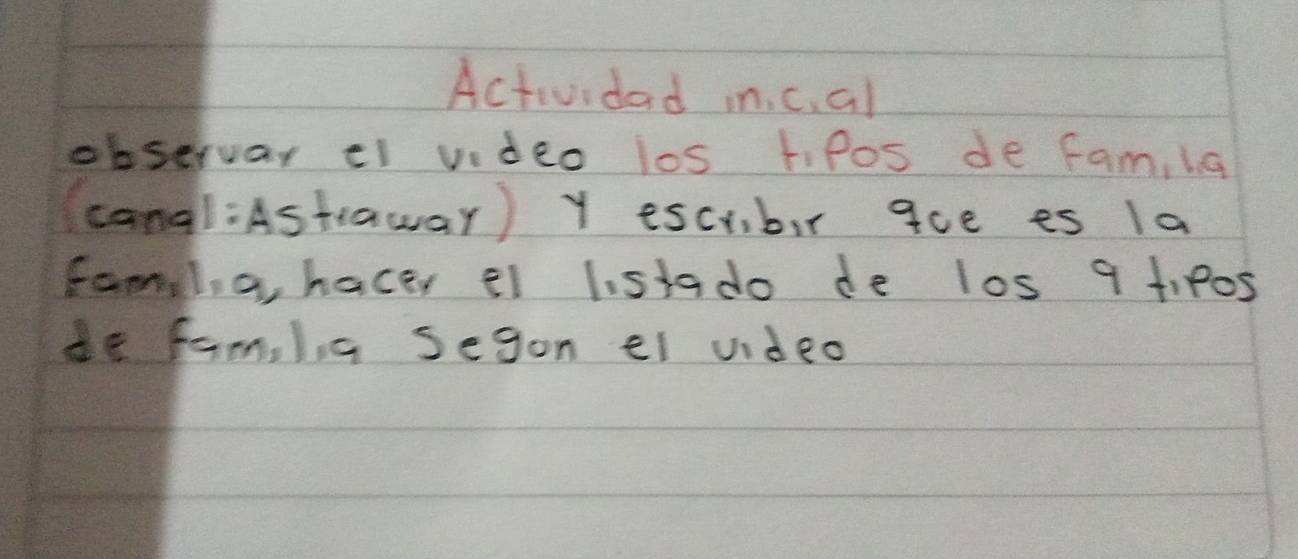 Actividad inicial
observar el video los tipos de familia
(canal: Astraway) y escribir que es la
familia, hacer el listado de los 9 tipos
de familia segon el video